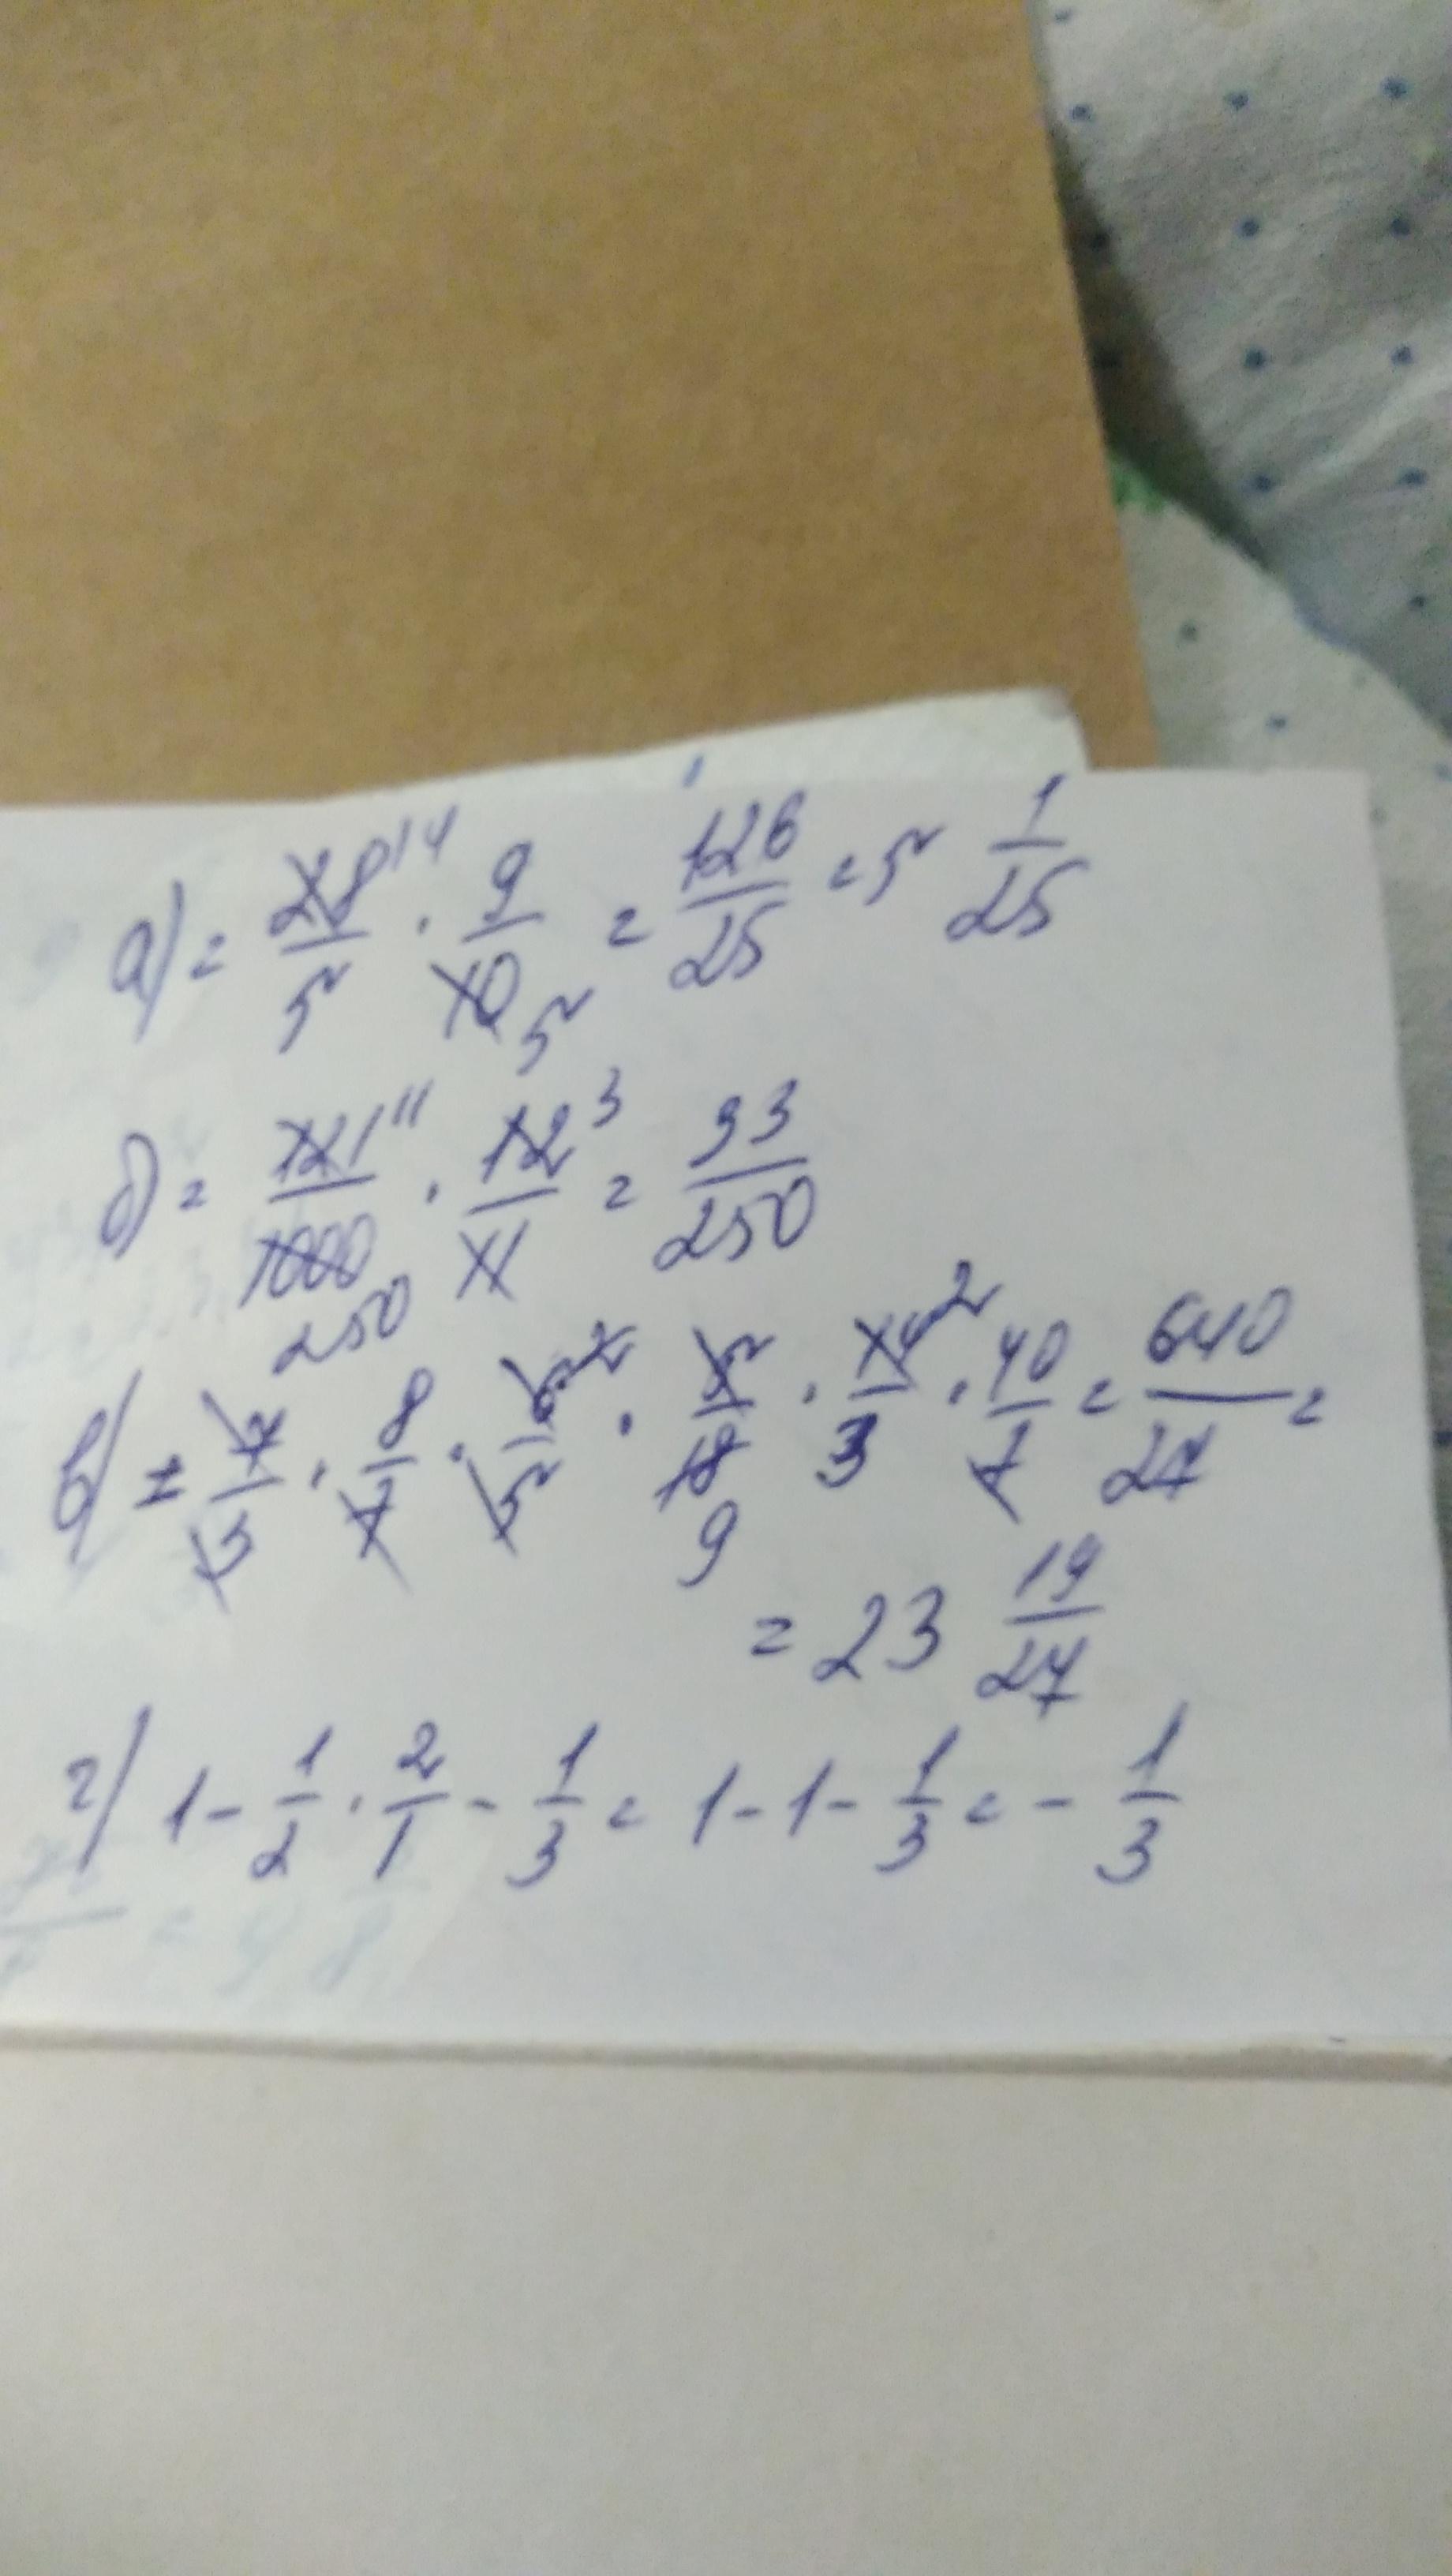 а) = 28/5 14 · 9/10 5 = 126/25 = 5 1/25
б) = 121/1000 11 250 · 12/11 3 = 33/250
в) = 7/3 · 8/7 · 6/5 2 · 5/18 9 · 14/3 2 · 40/7 = 640/27 =
= 23 19/27
г) 1 - 1/2 · 2/1 - 1/3 = 1 - 1 - 1/3 = - 1/3